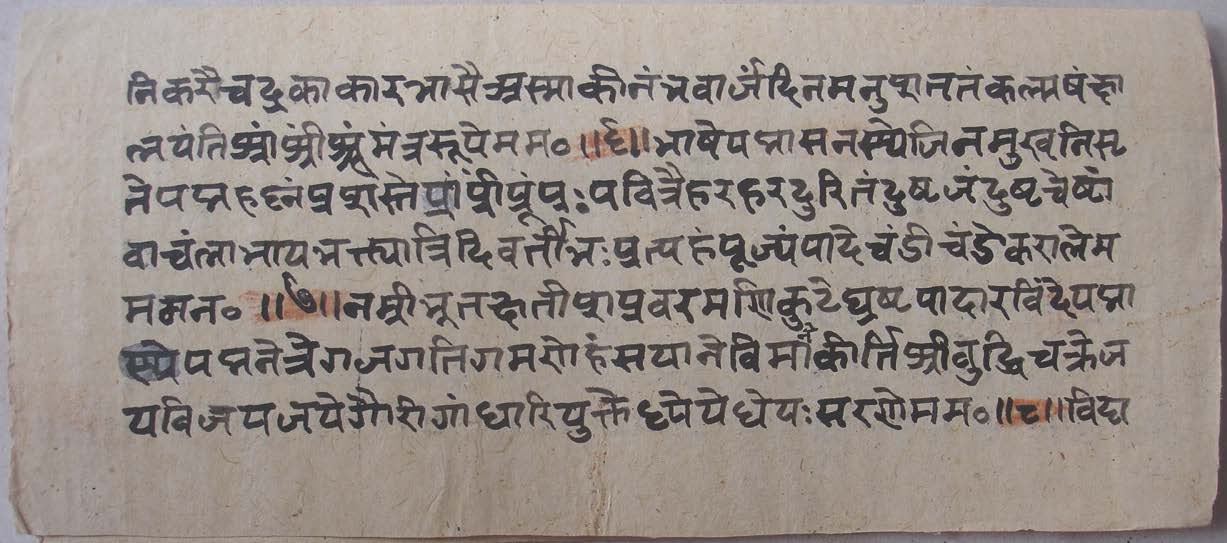 निकरैच्चद्रकाकारभासैअस्माकीनंभवार्जंदिनमनुशततंकल्मषंक्षा
लयंतिश्रांश्रींश्रूंमंत्ररूपेमम० ॥६॥ भाषेपद्मासनस्थेजिनमुखनिस्
तेपद्महस्तेप्रशस्तेप्रांप्रींप्रूंप्रः पवित्रैहरहरदुरितंदुष्टजंदुष्टचेष्टां
वाचंलाभायभक्त्यात्रिदिवर्तीभः प्रत्यहंपूज्यंपादेचंडीचंडेकरालेम
ममन० ॥७॥ नम्रीभूतक्षतीशप्रवरमणिकुटेघृष्टपादारविंदेपद्मा
स्येपद्मनेत्रेगजगतिगमणेहंसयानेविमानेकीर्तिश्रीबुद्धिचक्रेज
यविजयजयेगौरीगांधारियुक्तेध्येयेध्येयः सरणेमम० ॥८॥ विद्या